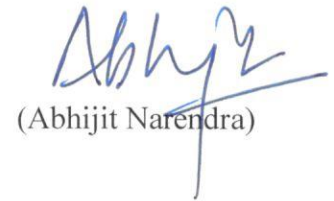 Abhijit
(Abhijit Narendra)